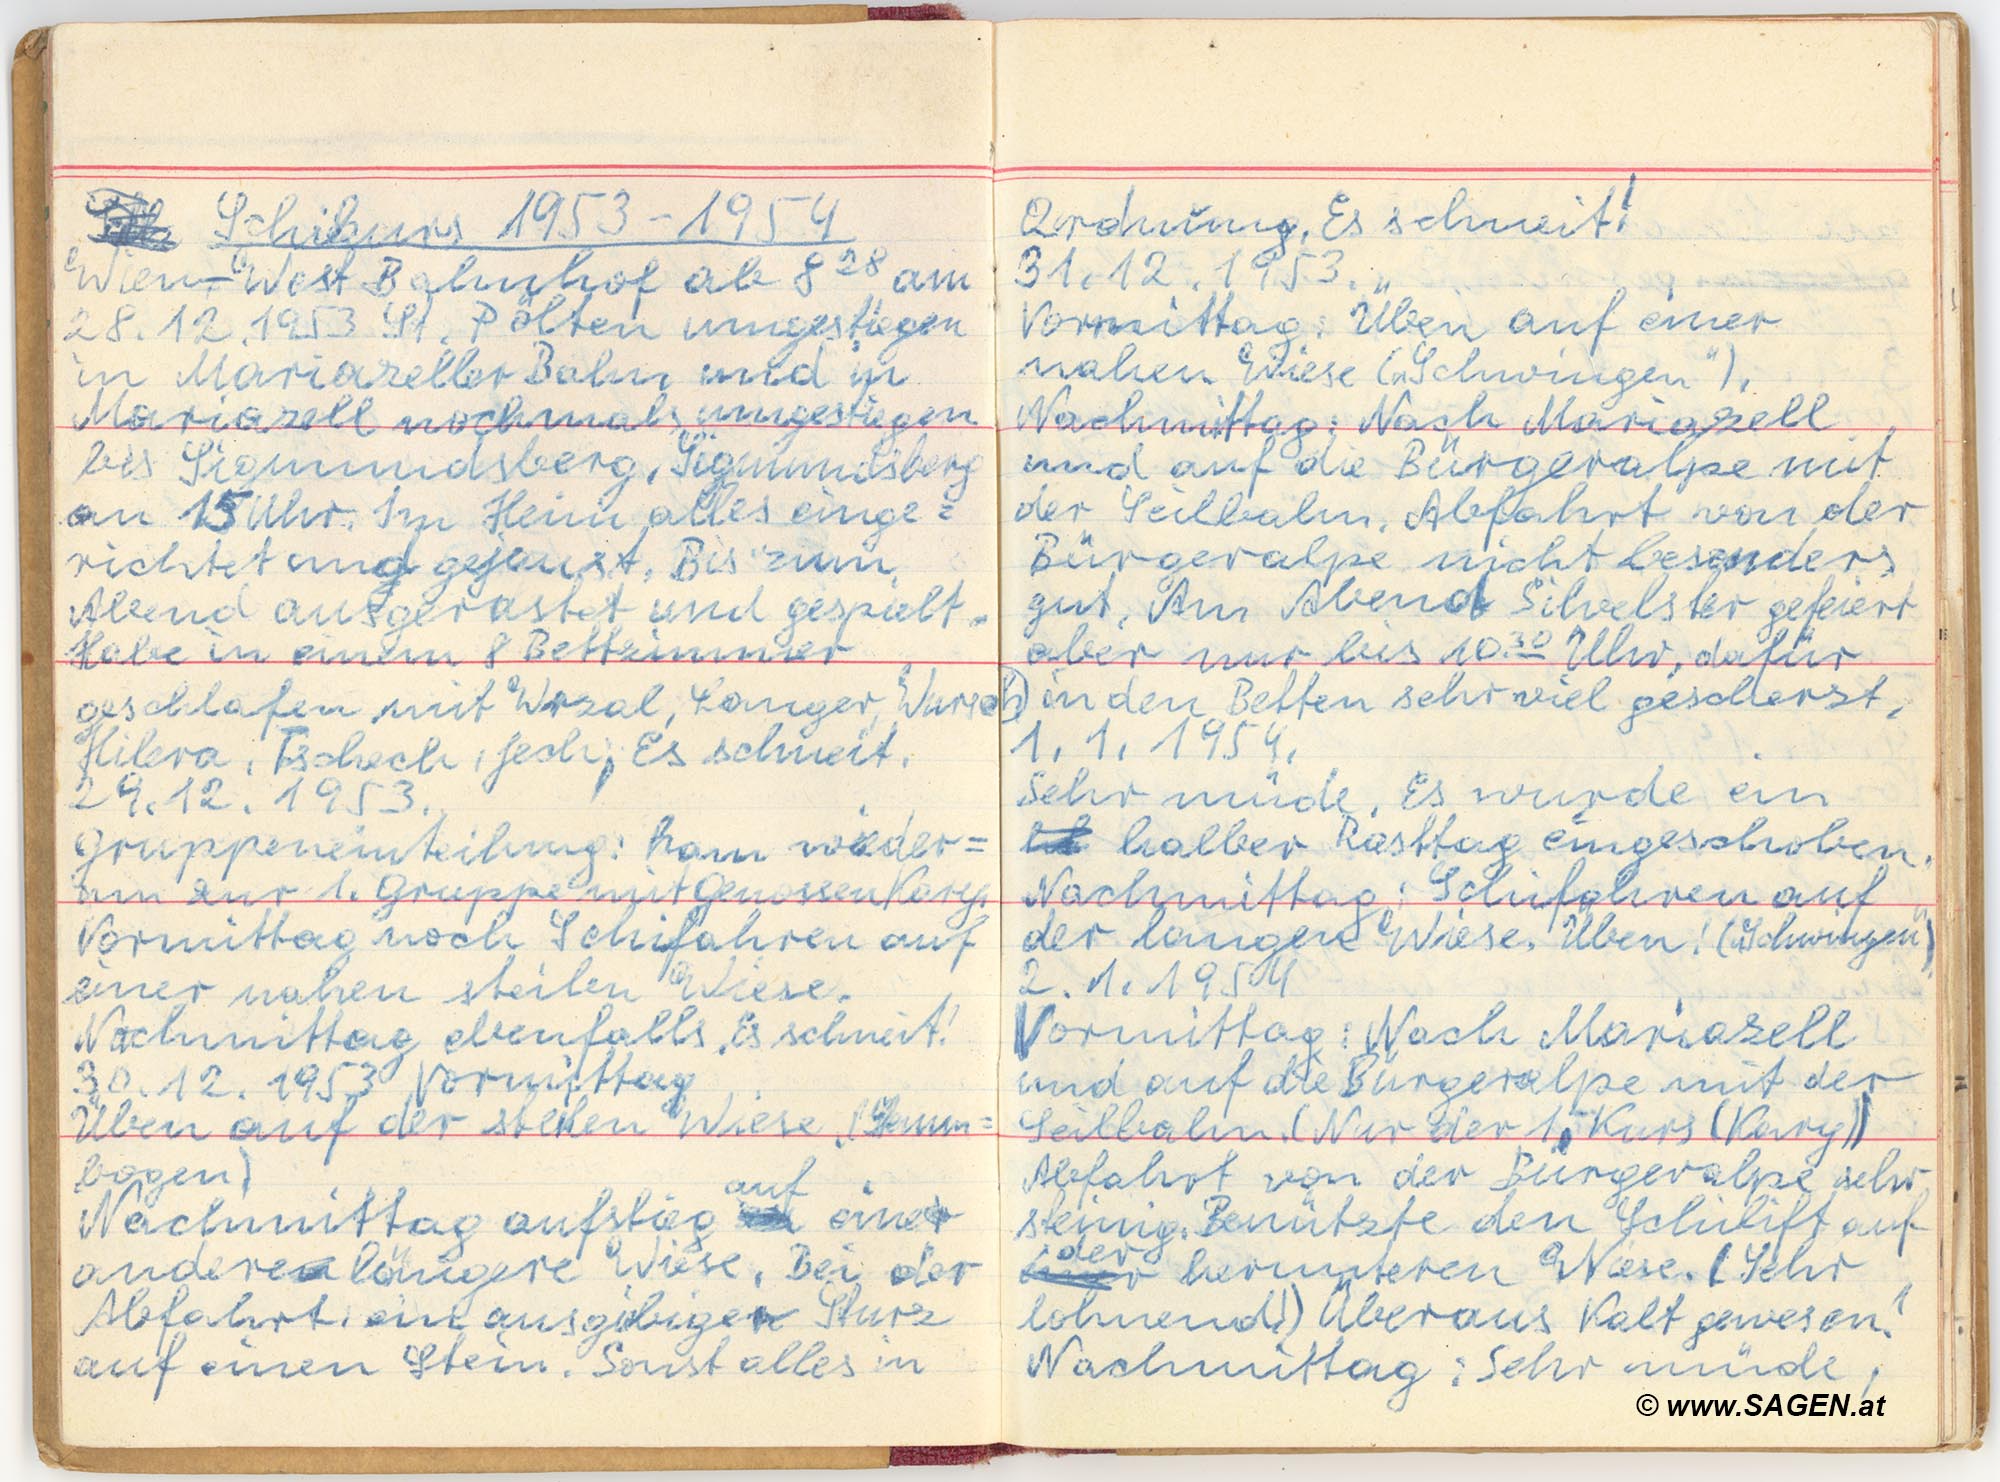 Schikurs 1953-1954
Wien-West Bahnhof ab 8 28 am
28.12.1953 St. Pölten umgestiegen
in Mariazeller Bahn und in
Mariazell nochmals umgestiegen
bis Sigmundsberg, Sigmundsberg
an 15 Uhr. Im Heim alles einge=
richtet und gejaust. Bis zum
Abend ausgerastet und gespielt.
Habe in einem 8 Bettzimmer
geschlafen mit Wrzal, Langer, Wursch
Hilera, Tschech, Jech, Es schneit.
29.12.1953.
Gruppeneinteilung: kam wieder=
um zur 1. Gruppe mit Genossen Kary.
Vormittag noch Schifahren auf
einer nahen steilen Wiese.
Nachmittag ebenfalls. Es schneit!
30.12.1953 Vormittag
Üben auf der steilen Wiese (Stemm=
bogen)
Nachmittag aufstieg auf eine
andere längere Wiese. Bei der
Abfahrt ein ausgibiger Sturz
auf einen Stein. Sonst alles in
Ordnung. Es schneit!
31.12.1953.
Vormittag: Üben auf einer
nahen Wiese („Schwingen").
Nachmittag: Nach Mariazell
und auf die Bürgeralpe mit
der Seilbahn. Abfahrt von der
Bürgeralpe nicht besonders
gut. Am Abend Silvelster gefeiert
aber nur bis 10.30 Uhr, dafür
in den Betten sehr viel gescherzt.
1.1.1954.
Sehr müde. Es wurde ein
halber Rasttag eingeschoben.
Nachmittag: Schifahren auf
der langen Wiese. Üben! („Schwingen")
2.1.1954
Vormittag: Nach Mariazell
und auf die Bürgeralpe mit der
Seilbahn. (Nur der 1. Kurs (Kary))
Abfahrt von der Bürgeralpe sehr
steinig. Benützte den Schilift auf
der herunteren Wiese. (Sehr
lohnend!) Überaus Kalt gewesen!
Nachmittag: Sehr müde,
© www.SAGEN.at